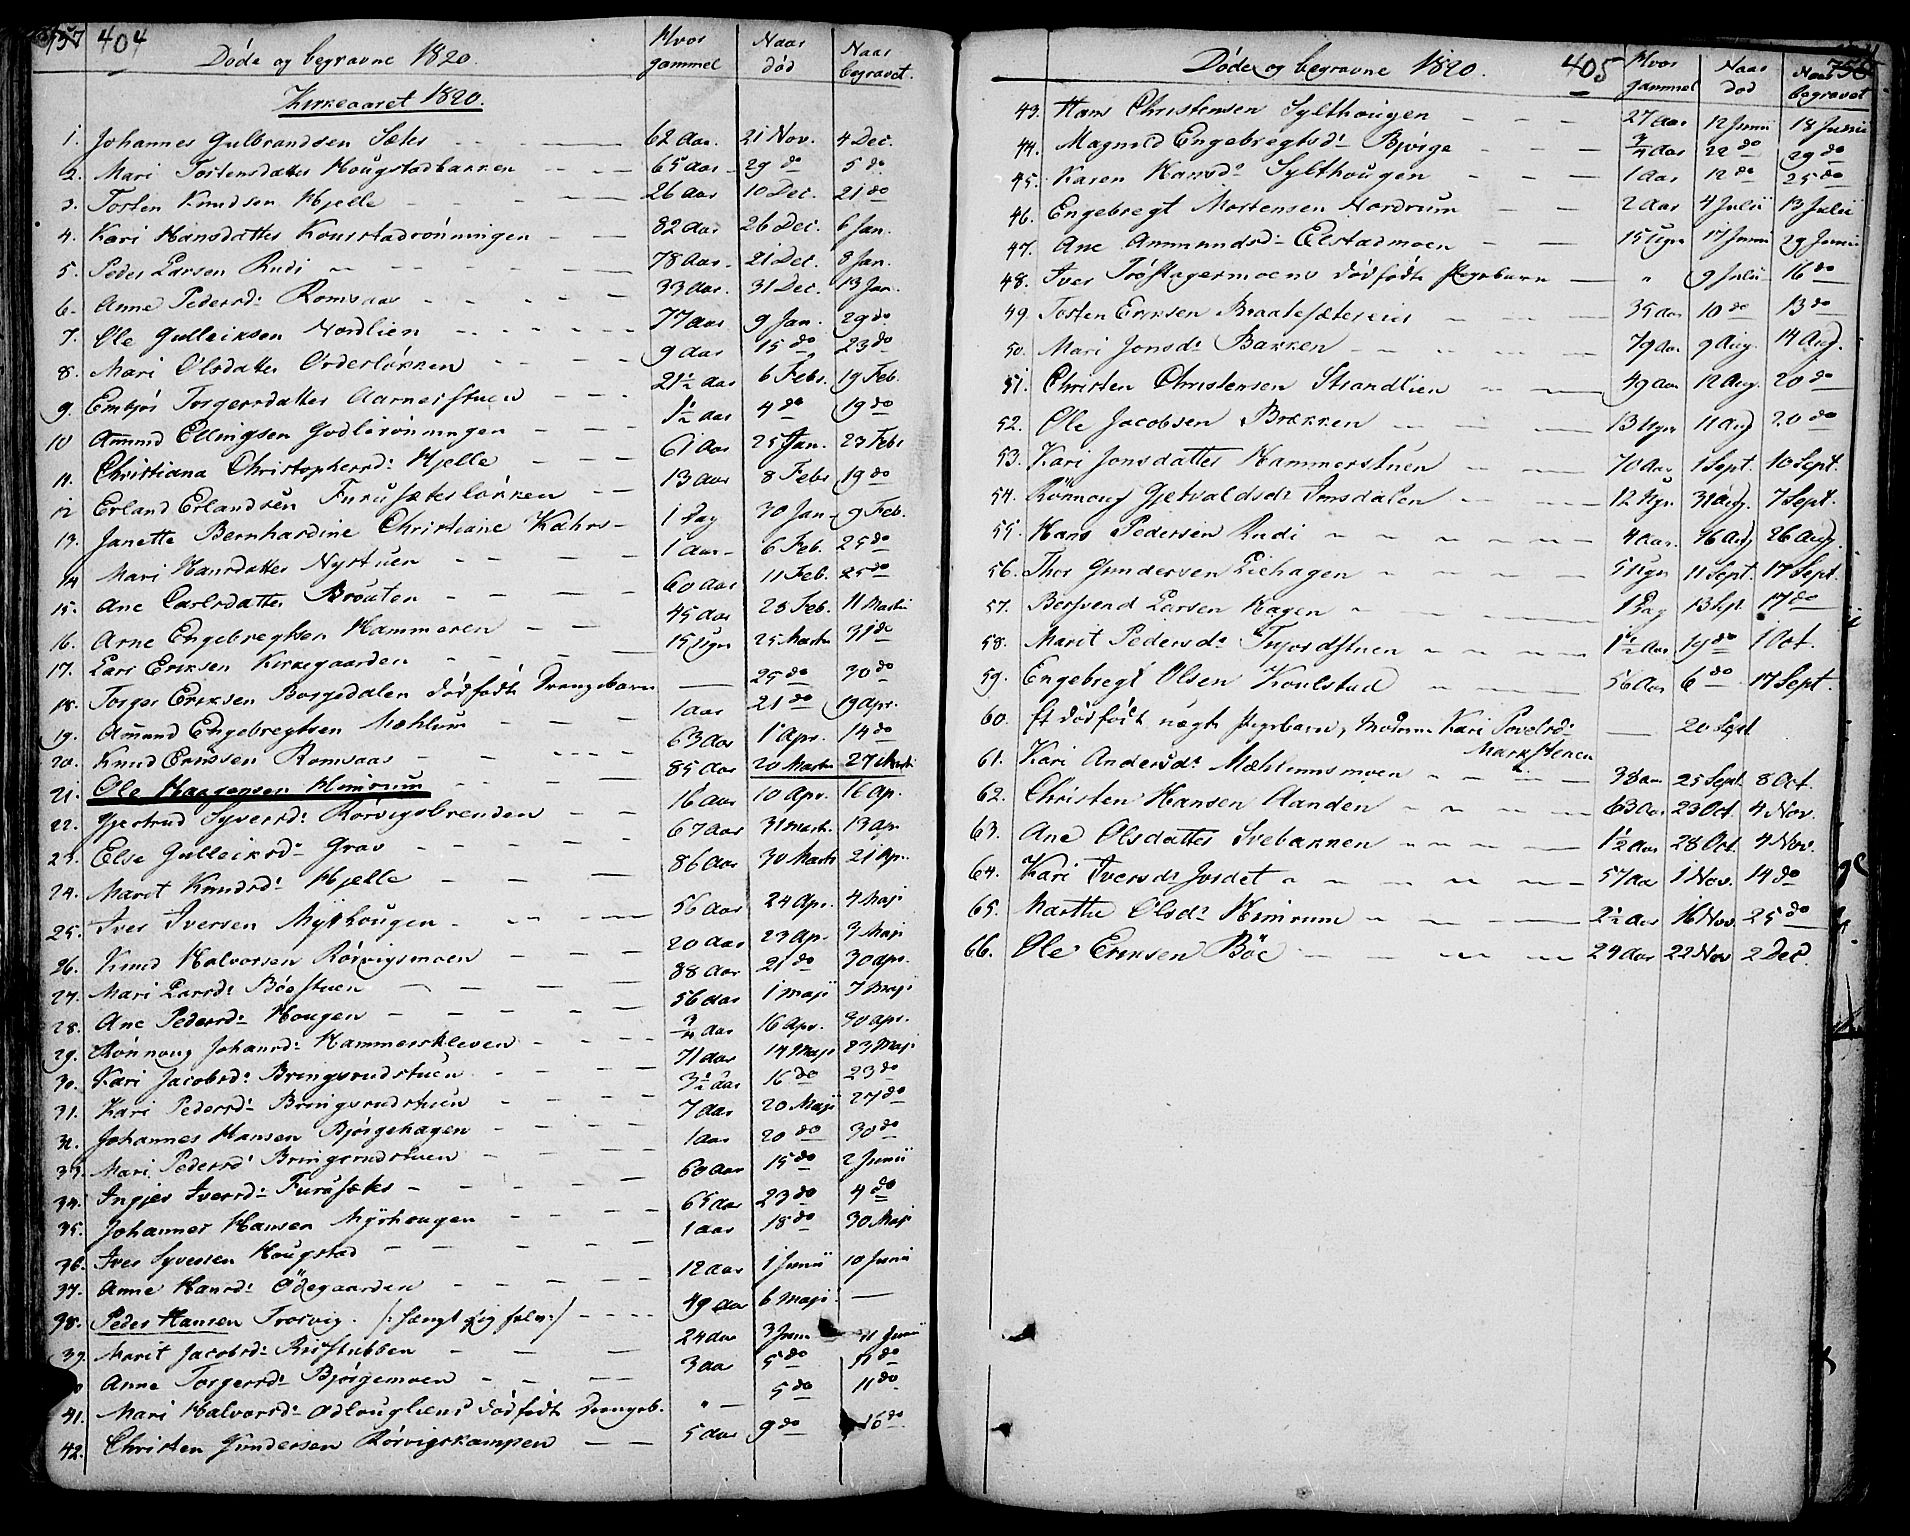 404
Døde og begravne 1820.
Hvor gammel Naar død Naar begravet.
Kirkeaaret 1820.
1. Johannes Gulbrandsen Sæter 62 Aar. 21 Nov. 4 Dec.
2. Mari Tostensdatter Hougstadbakken 65 Aar 29 do 5 do
3. Tosten Knudsen Hjelle 26 Aar 10 Dec. 21 do
4. Kari Hansdatter Konstadrønningen 82 Aar 26 Dec. 6 Jan.
5. Peder Larsen Rudi 78 Aar 21 Dec. 8 Jan.
6. Anne Pedersd: Romsaas 33 Aar. 31 Dec. 13 Jan.
7. Ole Gulleiksen Nordlien 77 Aar 9 Jan. 29 do
8. Mari Olsdatter Orderløkken 9 Aar 15 do 23 do
9. Embjør Torgersdatter Aarnesstuen 21½ Aar 6 Febr. 19 Feb.
10 Amund Ellingsen Godlirønningen 1½ Aar 4 do 19 do
11. Christiana Christophersd: Hjelle 61 Aar 25 Jan. 23 Febr
12 Erland Erlandsen Furusæterløkken 13 Aar 8 Febr 19 do
13. Janette Bernhardine Christiane Kæhrs 1 Dag 30 Jan 9 Feb.
14 Mari Hansdatter Nystuen 1 Aar 6 Feb. 25 do
15. Ane Carlsdatter Brouten 60 Aar 11 Feb. 25 do
16. Arne Engebregtsen Hammeren 45 Aar 28 Feb. 11 Martii
17. Lars Eriksen Kirkegaarden 15 Uger 25 Marti 31 do
18. Torger Eriksen Borgedalen dødfødte Drengebarn — 25 do 30 do
19. Amund Engebregtsen Mæhlum 1 Aar 21 do 19 Apr.
20. Knud Eriksen Romsaas 63 Aar 1 Apr. 14 do
21. Ole Haagensen Himrum 85 Aar 20 Marti 27 Marti
22. Gjertrud Syversd: Rørvigsbrenden 16 Aar 10 Apr. 16 Ap.
23. Else Gulleiksd: Grav 67 Aar 31 Mart. 13 Ap.
24. Marit Knudsd: Hjelle 86 Aar 30 Marti 21 Ap.
25. Iver Iversen Myhrhougen 56 Aar 24 Apr. 4 Maji
26. Knud Halvorsen Rørvigsmoen 20 Aar 23 Ap. 3 Maji
27. Mari Larsd: Bøestuen 88 Aar 21 do 30 Apr.
28. Ane Pedersd: Hougen 56 Aar 1 Maji 7 Maji
29. Rønnoug Johansd: Hammerskleven ¾ Aar 16 Apr. 30 Apr.
30. Kari Jacobsd: Bringsrudstuen 71 Aar 14 Maji 23 Maji
31. Kari Pedersd: Bringsrudstuen 3½ Aar 16 do 23 do
32. Johannes Hansen Bjørgehagen 7 Aar 20 Maji 27 do
33. Mari Pedersd: Bringsrudstuen 1 Aar 20 do 30 do
34. Ingjer Iversd: Furusæter 60 Aar 15 do 2 Junii
35. Johannes Hansen Myrhougen 65 Aar 23 do 4 do
36. Iver Syversen Hougstad 1 Aar 18 do 30 Maji
37. Anne Hansd: Ödegaarden 12 Aar 1 Junii 10 Junii
38. Peder Hansen Trosvig. /:hængt sig selv:/ 49 Aar 6 Maji —
39. Marit Jacobsd: Riisstubben 24 Aar 3 Junii 11 Junii
Anne Torgersd: Bjørgemoen 3 Aar 5 do 11 do
41. Mari Halvorsd: Odlougliens dødfødte Drengeb. " 5 do 11 do
42. Christen Gundersen Rørvigskampen 5 Aar 9 do 16 do
Døde og begravne 1820. 405
Hvor gammel Naar død Naar begravet
43. Hans Christensen Sylthougen 27 Aar 12 Junii 18 Junii
44. Magnild Engebregtsd: Bjørge ¾ Aar 22 do 29 do
45. Karen Hansd: Sylthougen 1 Aar 12 do 25 do
46. Engebregt Mortensen Nordrum 2 Aar 4 Julii 13 Julii
47. Ane Ammundsd: Elstadmoen 15 Uger 17 Junii 29 Junii
48. Iver Trøstagermoens dødfødte Pigebarn " 9 Julii 16 do
49. Tosten Eriksen Braatesætereier 35 Aar 10 do 13 do
50. Mari Jonsd: Bakken 79 Aar 9 Aug. 14 Aug.
51. Christen Christensen Strandlien 49 Aar 12 Aug. 20 do
52. Ole Jacobsen Brekken 13 Uger 11 Aug 20 do
53. Kari Jonsdatter Hammerstuen 70 Aar 1 Sept. 10 Sept.
54. Rönnoug Gjetvaldsd: Imsdalen 12 Uger 31 Aug. 7 Sept.
55. Hans Pedersen Rudi 4 Aar. 16 Aug 26 Aug.
56. Thor Gundersen Liehagen 5 Uger 11 Sept. 17 Sept.
57. Bersvend Larsen Hagen 1 Dag 13 Sept. 17 do
58. Marit Pedersd: Fhjordstuen 1½ Aar 19 do 1 Oct.
59. Engebregt Olsen Koulstad 56 Aar 6 do 17 Sept.
60. Et dødfødt uægte Pigebarn, Moderen Kari Povelsd: Markstenen — 20 Sept
61. Kari Andersd: Mæhlumsmoen 38 Aar 25 Sept. 8 Oct.
62. Christen Hansen Aanden 63 Aar 23 Oct. 4 Nov.
63. Ane Olsdatter Svebakken 1½ Aar 28 Oct. 4 Nov.
64. Kari Iversd: Jordet 57 Aar 1 Nov. 14 do
65. Marthe Olsd: Himrum 2½ Aar 16 Nov. 25 do
66. Ole Eriksen Böe 24 Aar 22 Nov 2 Dec.